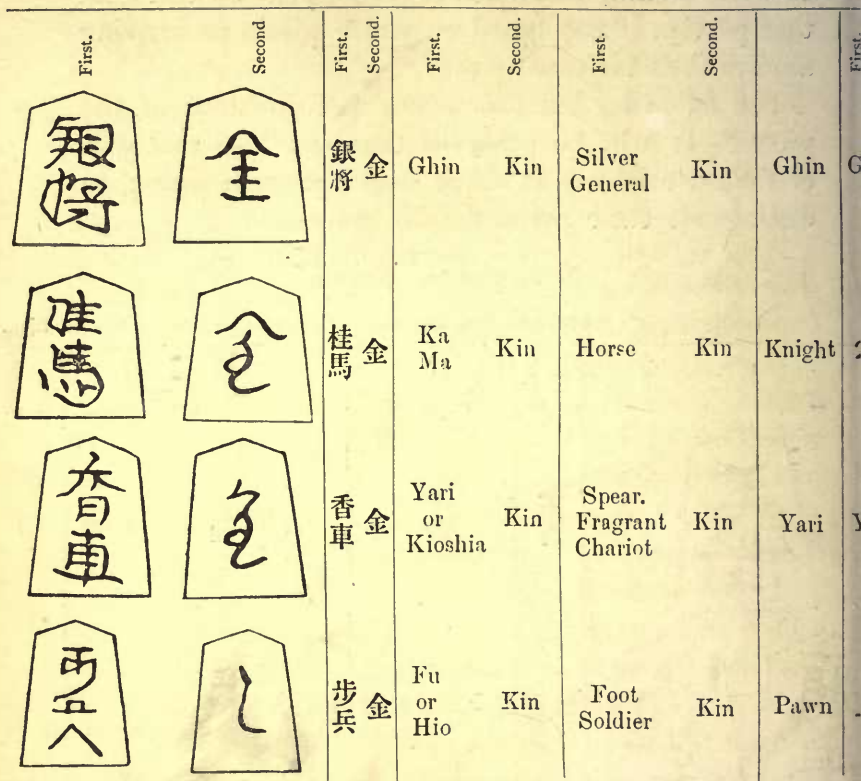 First. Second First. Second. First. Second. First. Second. First.
銀将 金 銀將 金 Ghin Kin Silver General Kin Ghin G
桂馬 金 桂馬 金 Ka Ma Kin Horse Kin Knight
香車 金 香車 金 Yari or Kioshia Kin Spear. Fragrant Chariot Kin Yari Y
歩兵 步兵 金 Fu or Hio Kin Foot Soldier Kin Pawn